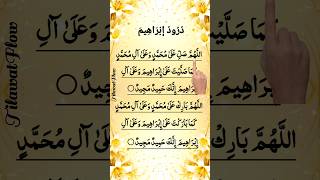 دَرُودِ إِبْرَاهِيمَ
اَللّٰهُمَّ صَلِّ عَلٰى مُحَمَّدٍ وَعَلٰى اٰلِ
مُحَمَّدٍ
كَمَا صَلَّيْتَ عَلٰى إِبْرَاهِيمَ وَعَلٰى اٰلِ
إِبْرَاهِيمَ إِنَّكَ حَمِيدٌ مَجِيدٌ
اَللّٰهُمَّ بَارِكْ عَلٰى مُحَمَّدٍ وَعَلٰى اٰلِ مُحَمَّدٍ
كَمَا بَارَكْتَ عَلٰى إِبْرَاهِيمَ وَعَلٰى اٰلِ
إِبْرَاهِيمَ إِنَّكَ حَمِيدٌ مَجِيدٌ
TilawatFlow